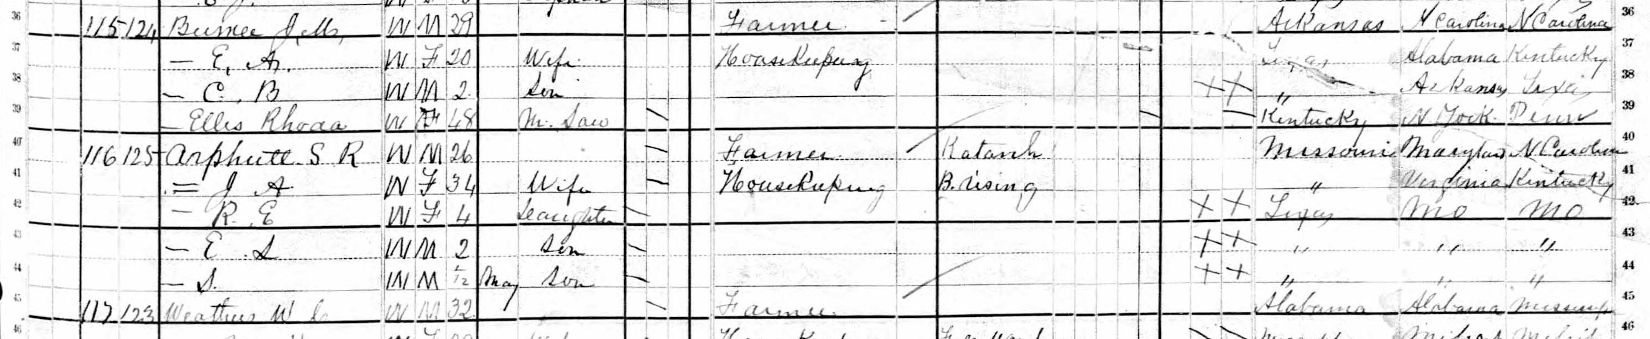 36 115 124 J. M. W M 29 Farmer Arkansas N Carolina N Carolina 36
37 — E. A. W F 20 Wife Housekeeping Texas Alabama Kentucky 37
38 — C. B W M 2 Son + + " Arkansas Texas 38
39 — Ellis Rhoda W F 48 M. Law Kentucky N. York Penn 39
40 116 125 Arphutt S R W M 26 Farmer Missouri Maryland N Carolina 40
41 = J A W F 34 Wife Housekeeping " Virginia Kentucky 41
42 — R. E W F 4 Daughter + + Texas MO MO 42
43 — E. S W M 2 Son + + " " " 43
44 — S. W M 1/12 May Son + + " " " 44
45 117 123 Weathers W W M 32 Farmer Alabama Alabama 45
46 46